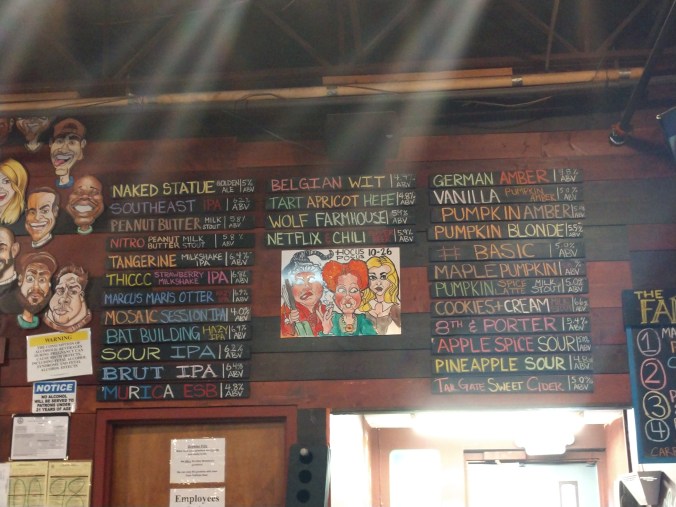 NAKED STATUE GOLDEN ALE 5% ABV
SOUTHEAST IPA ABV
PEANUT BUTTER MILK STOUT 5.8% ABV
NITRO PEANUT BUTTER MILK STOUT 5.8% ABV
TANGERINE MILKSHAKE IPA 6.9% ABV
THICCC STRAWBERRY MILKSHAKE IPA 6.8% ABV
MARCUS MARIS OTTER 6.9% ABV
MOSAIC SESSION IPA 4.0% ABV
BAT BUILDING HAZY IPA 6.9% ABV
SOUR IPA 6.2% ABV
BRUT IPA 6.4% ABV
MURICA ESB 4.8% ABV
BELGIAN WIT ABV
TART APRICOT HEFE ABV
WOLF FARMHOUSE 5.4% ABV
NETFLIX & CHILI 5.9% ABV
HOCUS POCUS 10-26
GERMAN AMBER 4.8% ABV
VANILLA PUMPKIN AMBER 5.0% ABV
PUMPKIN AMBER ABV
PUMPKIN BLONDE 5.5% ABV
# BASIC ABV
MAPLE PUMPKIN ABV
PUMPKIN SPICE MILK STOUT 5.0% ABV
COOKIES + CREAM ABV
8TH & PORTER 5.4% ABV
APPLE SPICE SOUR ABV
PINEAPPLE SOUR 4.8% ABV
TAIL GATE SWEET CIDER 5.0% ABV
WARNING
NOTICE
NO ALCOHOL
WILL BE SERVED TO
PATRONS UNDER
21 YEARS OF AGE
Employees
THE
FA
1
2
3
4